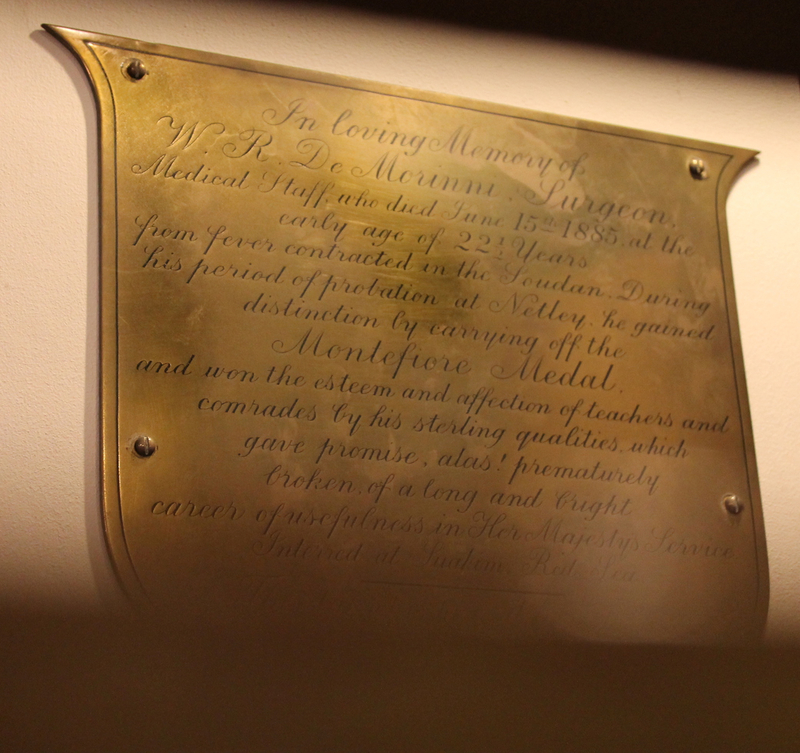 In loving Memory of
W. R. De Morinni, Surgeon,
Medical Staff, who died June 15th 1885, at the
early age of 22½ Years
from fever contracted in the Soudan. During
his period of probation at Netley, he gained
distinction by carrying off the
Montefiore Medal,
and won the esteem and affection of teachers and
comrades by his sterling qualities, which
gave promise, alas! prematurely
broken, of a long and bright
career of usefulness in Her Majesty's Service
Interred at Suakem, Red Sea